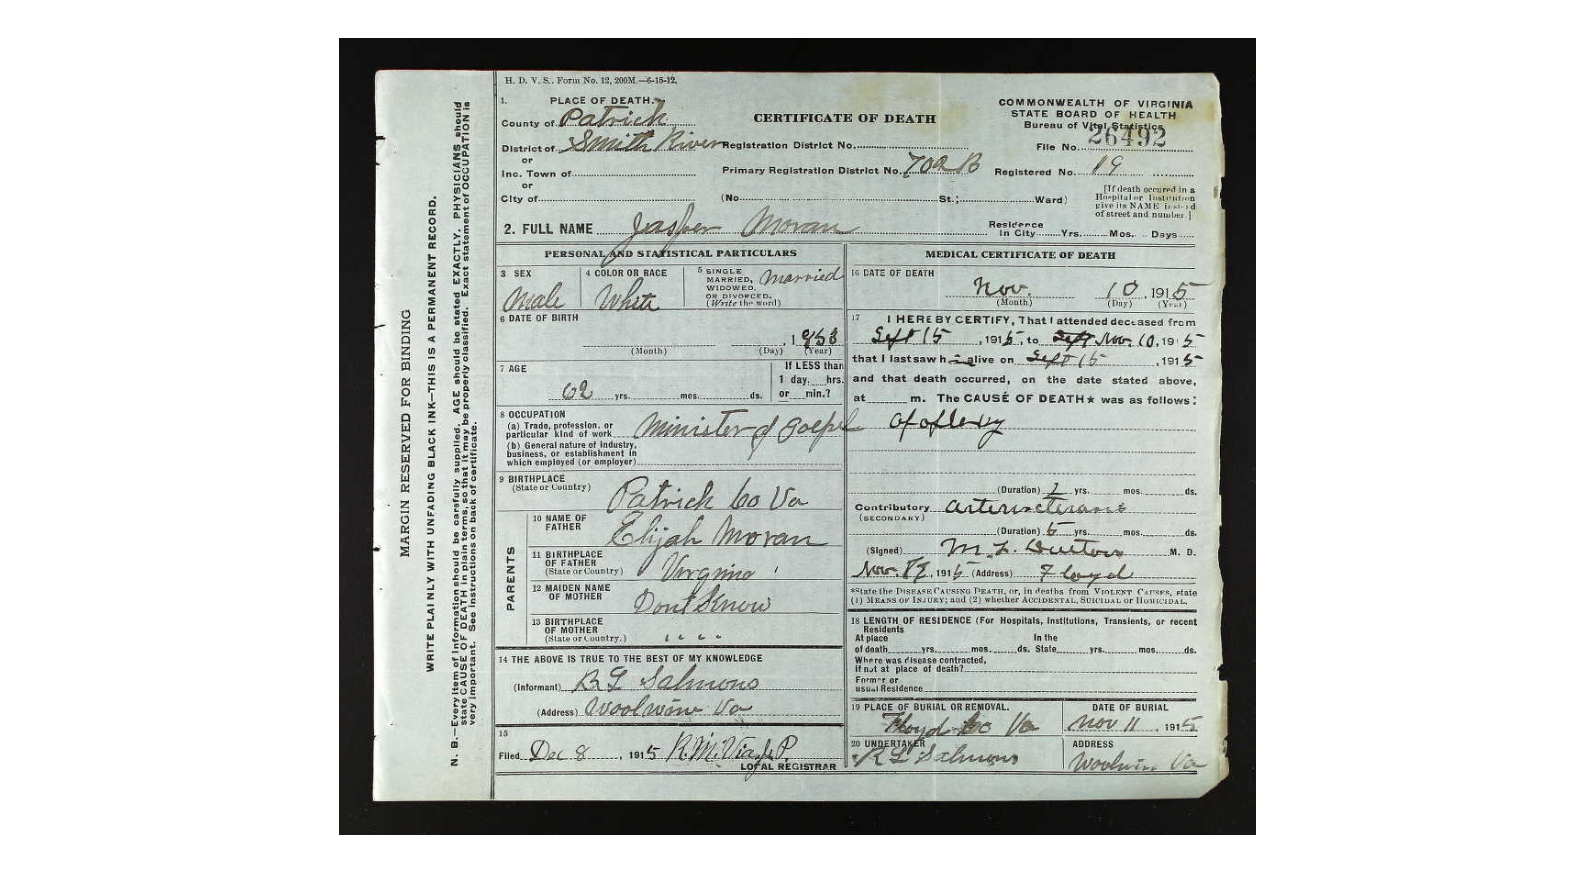 H. D. V. S. Form No. 12, 200M.—6-15-12.
MARGIN RESERVED FOR BINDING
WRITE PLAINLY WITH UNFADING BLACK INK—THIS IS A PERMANENT RECORD.
N. B.—Every item of information should be carefully supplied. AGE should be stated EXACTLY. PHYSICIANS should
state CAUSE OF DEATH in plain terms, so that it may be properly classified. Exact statement of OCCUPATION is
very important. See instructions on back of certificate.
1. PLACE OF DEATH.
County of Patrick
District of Smith River
or
Inc. Town of
or
City of
CERTIFICATE OF DEATH
Registration District No.
Primary Registration District No. 702 B
(No. St.; Ward)
COMMONWEALTH OF VIRGINIA
STATE BOARD OF HEALTH
Bureau of Vital Statistics
File No. 26492
Registered No. 19
[If death occured in a
Hospital or Institution
give its NAME instead
of street and number.]
2. FULL NAME Jasper Moran
Residence
In City Yrs. Mos. Days
PERSONAL AND STATISTICAL PARTICULARS
3 SEX
Male
4 COLOR OR RACE
White
5 SINGLE
MARRIED,
WIDOWED.
OR DIVORCED.
(Write the word)
Married
6 DATE OF BIRTH
, 1853
(Month) (Day) (Year)
7 AGE
62 yrs. mos. ds.
If LESS than
1 day, hrs.
or min.?
8 OCCUPATION
(a) Trade, profession, or
particular kind of work Minister of Gospel
(b) General nature of industry,
business, or establishment in
which employed (or employer)
9 BIRTHPLACE
(State or Country)
Patrick Co Va
PARENTS
10 NAME OF
FATHER
Elijah Moran
11 BIRTHPLACE
OF FATHER
(State or Country)
Virginia
12 MAIDEN NAME
OF MOTHER
Dont Know
13 BIRTHPLACE
OF MOTHER
(State or Country.)
" "
14 THE ABOVE IS TRUE TO THE BEST OF MY KNOWLEDGE
(Informant) R L Salmons
(Address) Woolwine Va
15
Filed Dec 8, 1915 R. M. Via J. P.
LOCAL REGISTRAR
MEDICAL CERTIFICATE OF DEATH
16 DATE OF DEATH
Nov. 10, 1915
(Month) (Day) (Year)
17 I HEREBY CERTIFY, That I attended deceased from
Sept 15, 1915, to Sept Nov. 10, 1915
that I last saw h alive on Sept 15, 1915
and that death occurred, on the date stated above,
at m. The CAUSE OF DEATH★ was as follows:
Apoplexy
(Duration) yrs. mos. ds.
Contributory
(SECONDARY)
(Duration) 5 yrs. mos. ds.
(Signed) M. L. M. D.
Nov. , 1915 (Address) Floyd
*State the DISEASE CAUSING DEATH, or, in deaths from VIOLENT CAUSES, state
(1) MEANS OF INJURY; and (2) whether ACCIDENTAL, SUICIDAL or HOMICIDAL.
18 LENGTH OF RESIDENCE (For Hospitals, Institutions, Transients, or recent
Residents
At place In the
of death yrs. mos. ds. State yrs. mos. ds.
Where was disease contracted,
If not at place of death?
Former or
usual Residence
19 PLACE OF BURIAL OR REMOVAL.
Floyd Co Va
DATE OF BURIAL
Nov 11, 1915
20 UNDERTAKER
R L Salmons
ADDRESS
Woolwine Va